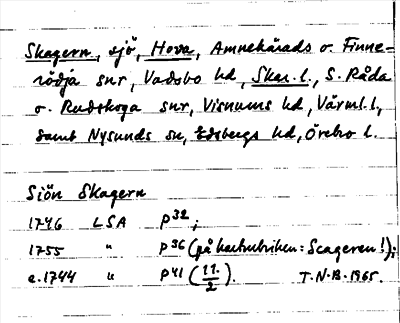 Skagern, sjö, Hova, Amnehärads o. Finne-
rödja snr, Vadsbo hd, Skar. l., S. Råda
o. Rudskoga snr, Visnums hd, Värml. l,
samt Nysunds sn, Edsbergs hd, Örebro l.
Siön Skagern
1746 LSA P32;
1755 " P36 (på kartrubriken: Scageren!);
c. 1744 " P41 (11/2). T.N.B. 1965.